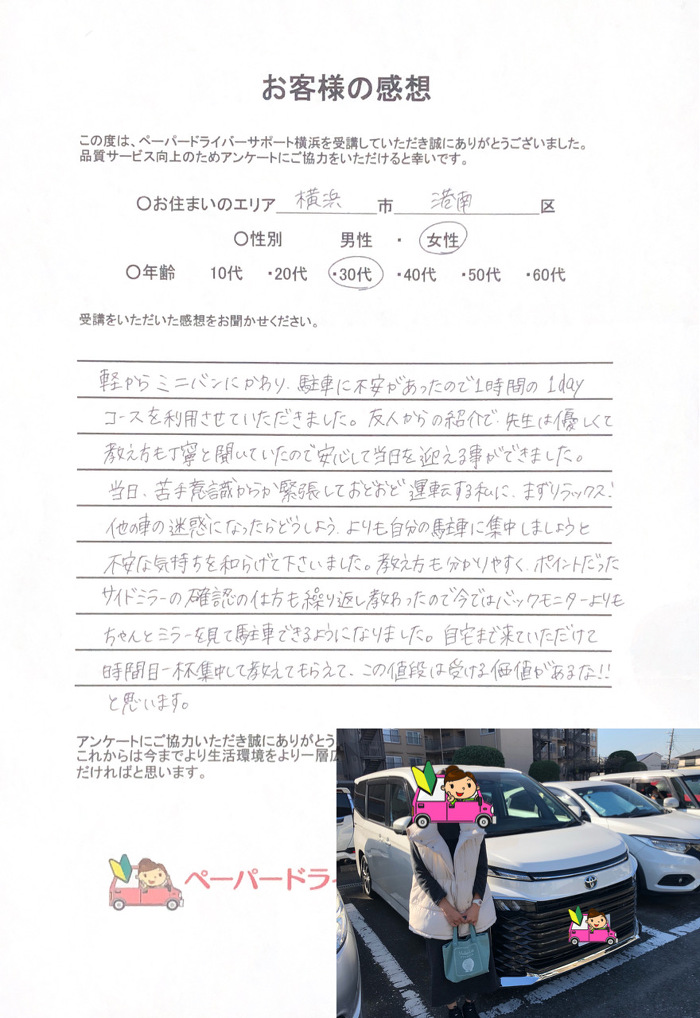 お客様の感想
この度は、ペーパードライバーサポート横浜を受講していただき誠にありがとうございました。
品質サービス向上のためアンケートにご協力をいただけると幸いです。
〇お住まいのエリア 横浜 市 港南 区
〇性別 男性 ・ 女性
〇年齢 10代 ・20代 ・30代 ・40代 ・50代 ・60代
受講をいただいた感想をお聞かせください。
軽からミニバンにかわり、駐車に不安があったので1時間の1day
コースを利用させていただきました。友人からの紹介で、先生は優しくて
教え方も丁寧と聞いていたので安心して当日を迎える事ができました。
当日、苦手意識からか緊張しておどおど運転する私に、まずリラックス!
他の車の迷惑になったらどうしよう、よりも自分の駐車に集中しましょうと
不安な気持ちを和らげて下さいました。教え方も分かりやすく、ポイントだった
サイドミラーの確認の仕方も繰り返し教わったので今ではバックモニターよりも
ちゃんとミラーを見て駐車できるようになりました。自宅まで来ていただけて
時間目一杯集中して教えてもらえて、この値段は受ける価値があるな!!
と思います。
アンケートにご協力いただき誠にありがとう
これからは今までより生活環境をより一層広
だければと思います。
ペーパードライ